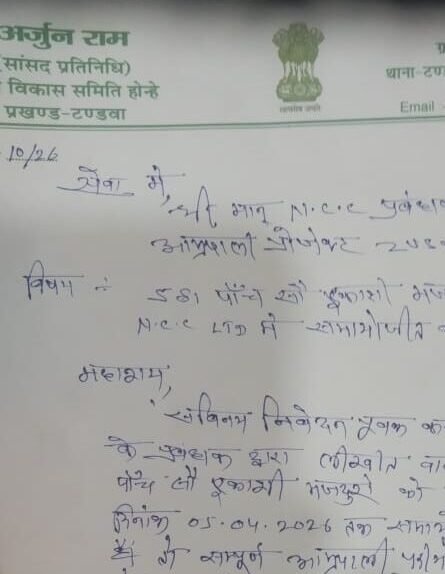 अर्जुन राम
(सांसद प्रतिनिधि)
विकास समिति होन्हे
प्रखण्ड-टण्डवा
सत्यमेव जयते
थाना-टण
Email
10/26
सेवा में,
श्री मान् N.C.C प्रबंधक
आम्रपाली प्रोजेक्ट
विषय :- 581 पाँच सौ इकासी
N.C.C LTD में समायोजीत
महाशय,
सविनय निवेदन पूर्वक
के प्रबंधक द्वारा लीखीत
पाँच सौ इकासी मजदुरो को
दिनांक 05.04.2026 तक
है की सम्पूर्ण आम्रपाली